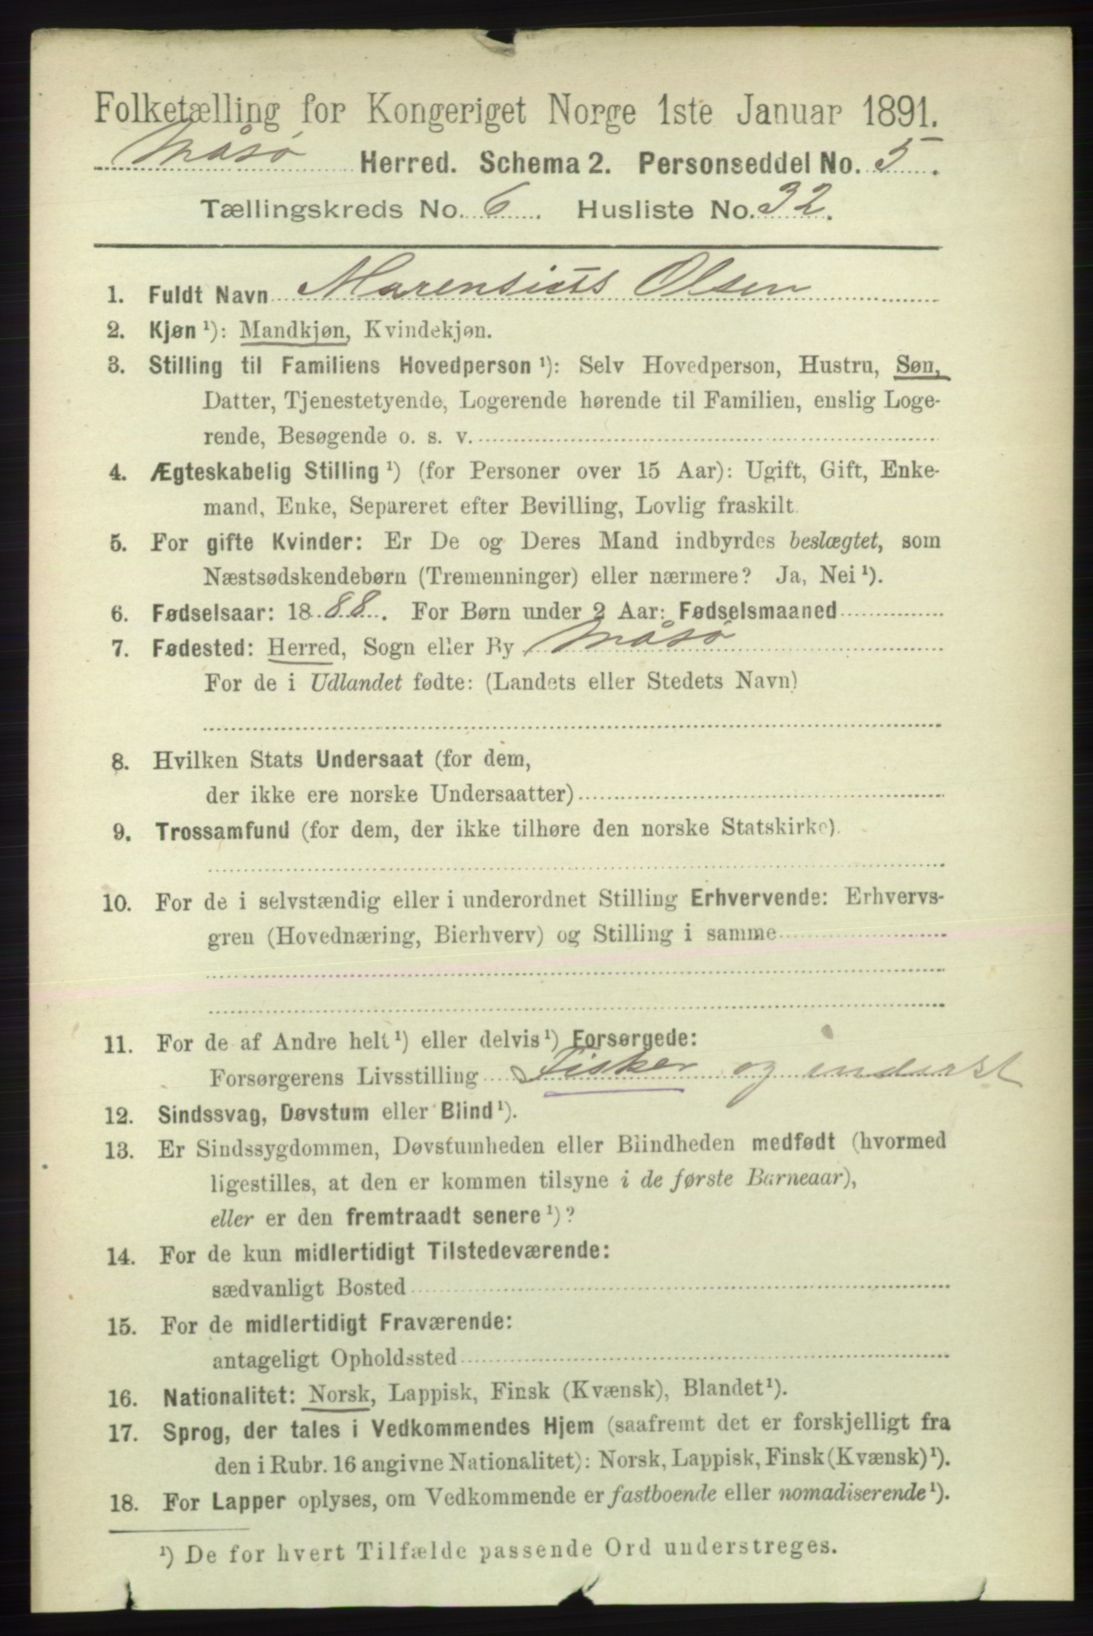 Folketælling for Kongeriget Norge 1ste Januar 1891.
Måsø Herred. Schema 2. Personseddel No. 5.
Tællingskreds No. 6. Husliste No. 32.
1. Fuldt Navn Marensius Olsen
2. Kjøn ¹): Mandkjøn, Kvindekjøn.
3. Stilling til Familiens Hovedperson ¹): Selv Hovedperson, Hustru, Søn,
Datter, Tjenestetyende, Logerende hørende til Familien, enslig Loge-
rende, Besøgende o. s. v.
4. Ægteskabelig Stilling ¹) (for Personer over 15 Aar): Ugift, Gift, Enke-
mand, Enke, Separeret efter Bevilling, Lovlig fraskilt.
5. For gifte Kvinder: Er De og Deres Mand indbyrdes beslægtet, som
Næstsødskendebørn (Tremenninger) eller nærmere? Ja, Nei ¹).
6. Fødselsaar: 1888. For Børn under 2 Aar: Fødselsmaaned
7. Fødested: Herred, Sogn eller By Måsø
For de i Udlandet fødte: (Landets eller Stedets Navn)
8. Hvilken Stats Undersaat (for dem,
der ikke ere norske Undersaatter)
9. Trossamfund (for dem, der ikke tilhøre den norske Statskirke).
10. For de i selvstændig eller i underordnet Stilling Erhvervende: Erhvervs-
gren (Hovednæring, Bierhverv) og Stilling i samme
11. For de af Andre helt ¹) eller delvis ¹) Forsørgede:
Forsørgerens Livsstilling Fisker og inderst
12. Sindssvag, Døvstum eller Blind ¹).
13. Er Sindssygdommen, Døvstumheden eller Blindheden medfødt (hvormed
ligestilles, at den er kommen tilsyne i de første Barneaar),
eller er den fremtraadt senere ¹)?
14. For de kun midlertidigt Tilstedeværende:
sædvanligt Bosted
15. For de midlertidigt Fraværende:
antageligt Opholdssted
16. Nationalitet: Norsk, Lappisk, Finsk (Kvænsk), Blandet ¹).
17. Sprog, der tales i Vedkommendes Hjem (saafremt det er forskjelligt fra
den i Rubr. 16 angivne Nationalitet): Norsk, Lappisk, Finsk (Kvænsk) ¹).
18. For Lapper oplyses, om Vedkommende er fastboende eller nomadiserende ¹).
¹) De for hvert Tilfælde passende Ord understreges.